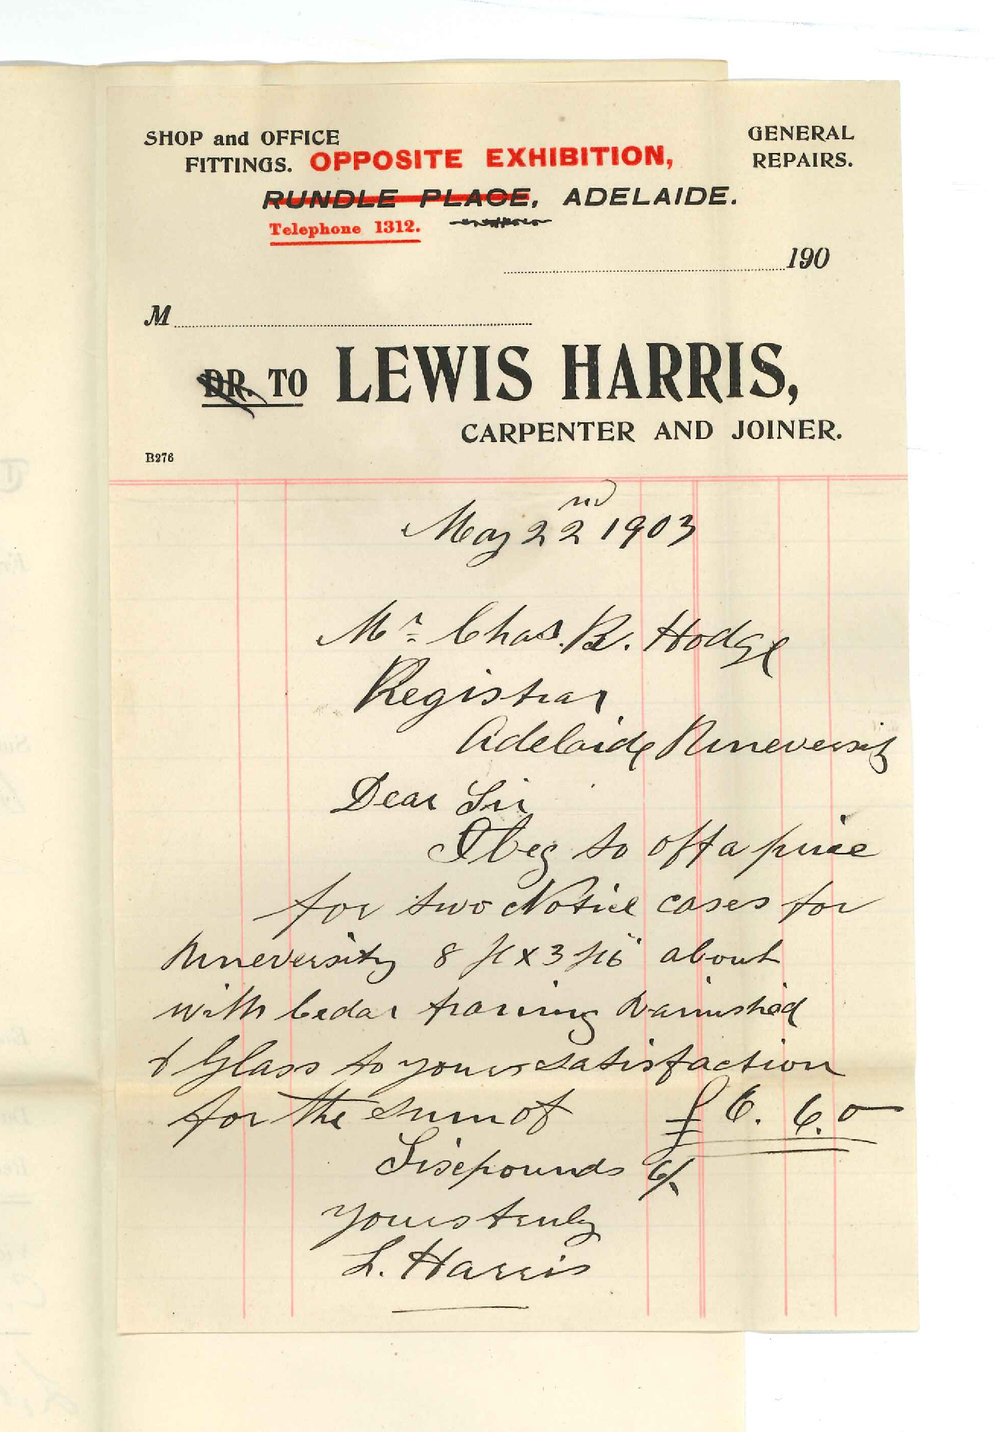 SHOP and OFFICE FITTINGS.
GENERAL REPAIRS.
OPPOSITE EXHIBITION,
RUNDLE PLACE, ADELAIDE.
Telephone 1312.
190
M
DR. TO LEWIS HARRIS,
CARPENTER AND JOINER.
B276
May 22nd 1903
Mr Chas. R. Hodge
Registrar
Adelaide Unneversity
Dear Sir
I beg to off a price
for two Notice cases for
Unneversity 8 ft x 3 ft 6" about
with Cedar framing Varnished
& Glass to your satisfaction
for the sum of £6. 6. 0
Sixpounds 6/
yours truly
L. Harris